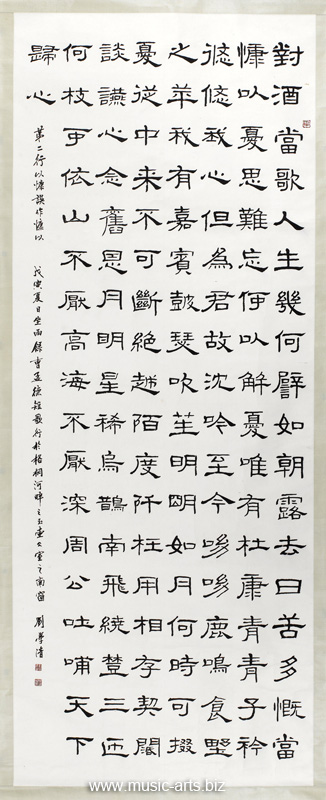 對酒當歌人生幾何譬如朝露去日苦多慨當
慷以憂思難忘何以解憂唯有杜康青青子衿
悠悠我心但為君故沈吟至今呦呦鹿鳴食野
之苹我有嘉賓鼓瑟吹笙明明如月何時可掇
憂從中来不可斷絕越陌度阡枉用相存契闊
談讌心念舊恩月明星稀烏鵲南飛繞樹三匝
何枝可依山不厭高海不厭深周公吐哺天下
歸心
第二行以慷誤作慷以
戊寅夏日坐雨錄曹孟德短歌行於梧桐河畔之 之南窗 劉學清
www.music-arts.biz